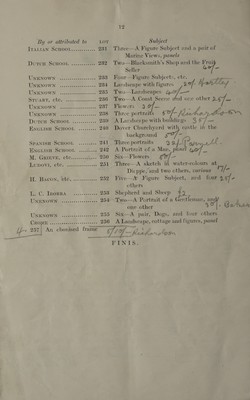 12
By or attributed to LOT Subject
ITALIAN SCHOOL ............ 231 Three—A Figure Subject and a pair of
Marine Views, panels
DUTCH SCHOOL ............ 232 Two—Blacksmith's Shop and the Fruit
Seller
UNKNOWN ............ 233 Four—Figure Subjects, etc.
UNKNOWN ............ 234 Landscape with figures
UNKNOWN ............ 235 Two—Landscapes
STUART, etc. ............ 236 Two—A Coast Scene and one other 25/-
UNKNOWN ............ 237 Flowers 25/-
UNKNOWN ............ 238 Three portraits 50/- Richardson
DUTCH SCHOOL ............ 239 A Landscape with buildings 25/-
ENGLISH SCHOOL ............ 240 Dover Churchyard with castle in the
background
SPANISH SCHOOL ............ 241 Three portraits
ENGLISH SCHOOL ............ 242 A Portrait of a Man, panel
M. GREEVE, etc. ............ 250 Six—Flowers
LUDOVI, etc. ............ 251 Three—A sketch in water-colours at
Dieppe, and two others, various
H. BACON, etc. ............ 252 Five—A Figure Subject, and four 25/-
others
L. C. ISOBRA ............ 253 Shepherd and Sheep £2
UNKNOWN ............ 254 Two—A Portrait of a Gentleman, and
one other
UNKNOWN ............ 255 Six—A pair, Dogs, and four others
CROME ............ 256 A Landscape, cottage and figures, panel
257 An ebonised frame Richardson
FINIS.